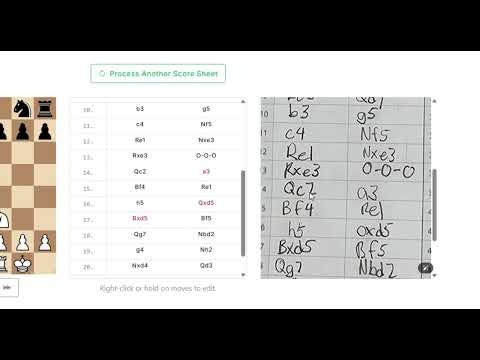 Process Another Score Sheet
10. b3 g5
11. c4 Nf5
12. Re1 Nxe3
13. Rxe3 O-O-O
14. Qc2 a3
15. Bf4 Re1
16. h5 Qxd5
17. Bxd5 Bf5
18. Qg7 Nbd2
19. g4 Nh2
20. Nxd4 Qd3
Right-click or hold on moves to edit.
Qd7
10 b3 g5
11 c4 Nf5
Re1 Nxe3
Rxe3 O-O-O
Qc2 a3
Bf4 Re1
h5 axd5
Bxd5 Bf5
Qg7 Nbd2